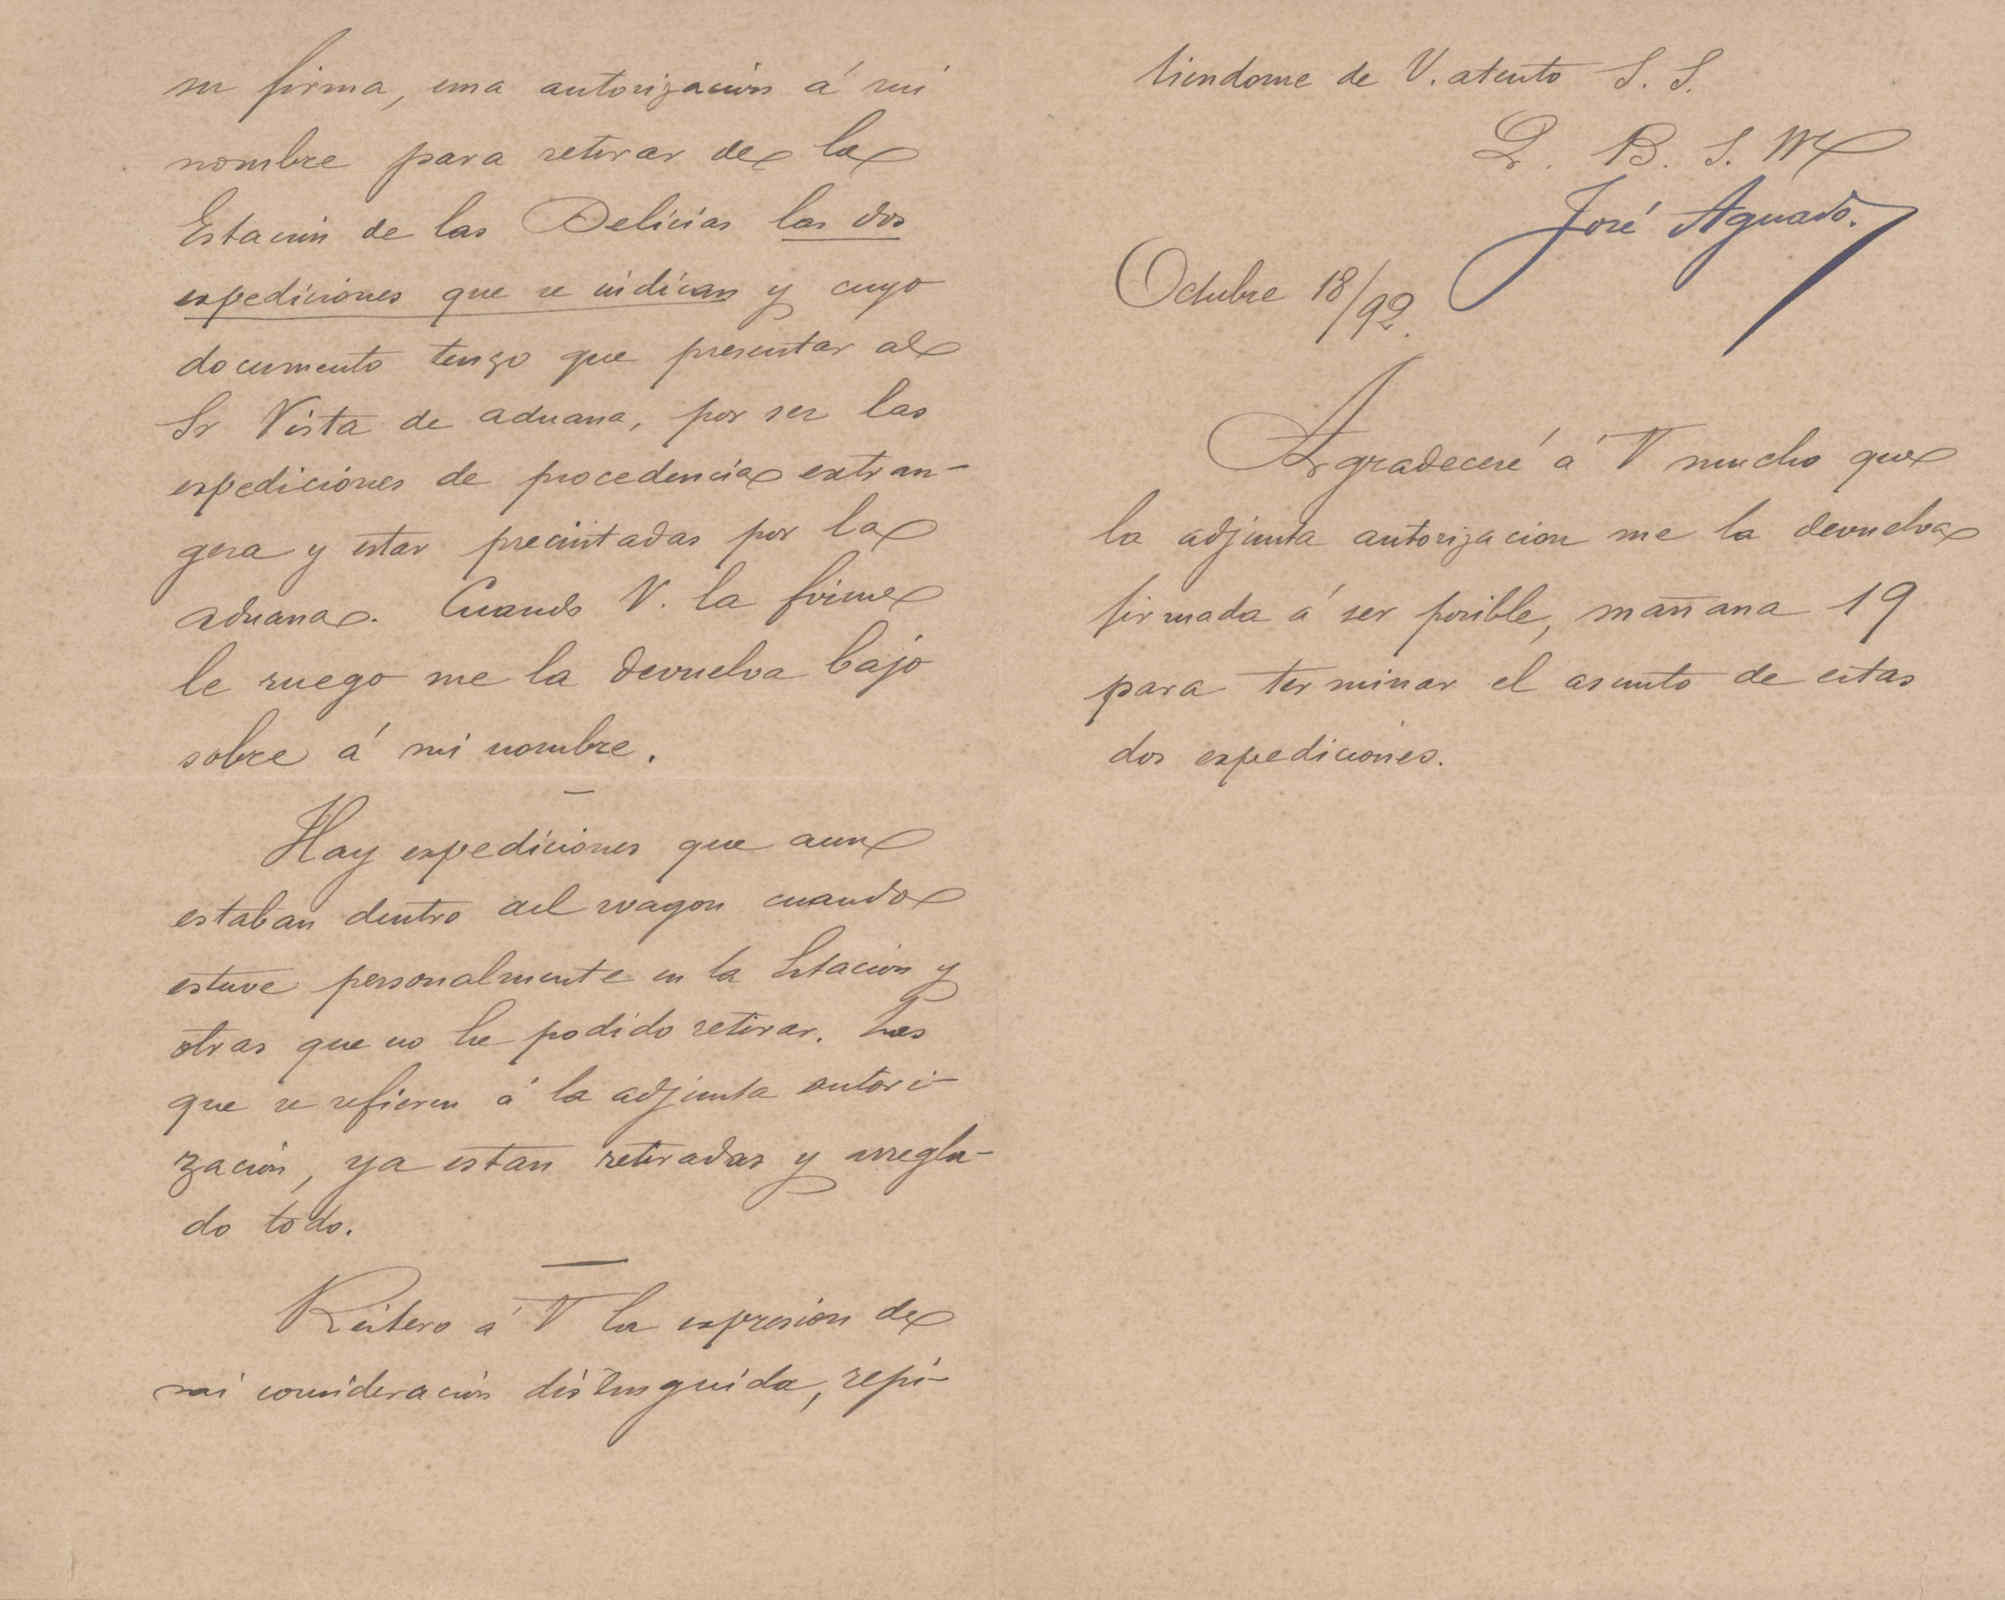 su firma, una autorización á mi
nombre para retirar de la
Estación de las Delicias las dos
expediciones que se indican y cuyo
documento tengo que presentar al
Sr Vista de aduana, por ser las
expediciones de procedencia extran-
gera y estar precintadas por la
aduana. Cuando V. la firme
le ruego me la devuelva bajo
sobre á mi nombre.
Hay expediciones que aun
estaban dentro del wagon cuando
estuve personalmente en la Estación y
otras que no he podido retirar. Las
que se refieren á la adjunta autori-
zación, ya estan retiradas y arregla-
do todo.
Reitero á V la expresion de
mi consideración distinguida, repi-
tiendome de V. atento S. S.
Q. B. S. M
José Aguado.
Octubre 18/92.
Agradeceré á V mucho que
la adjunta autorizacion me la devuelva
firmada á ser posible, mañana 19
para terminar el asunto de estas
dos expediciones.